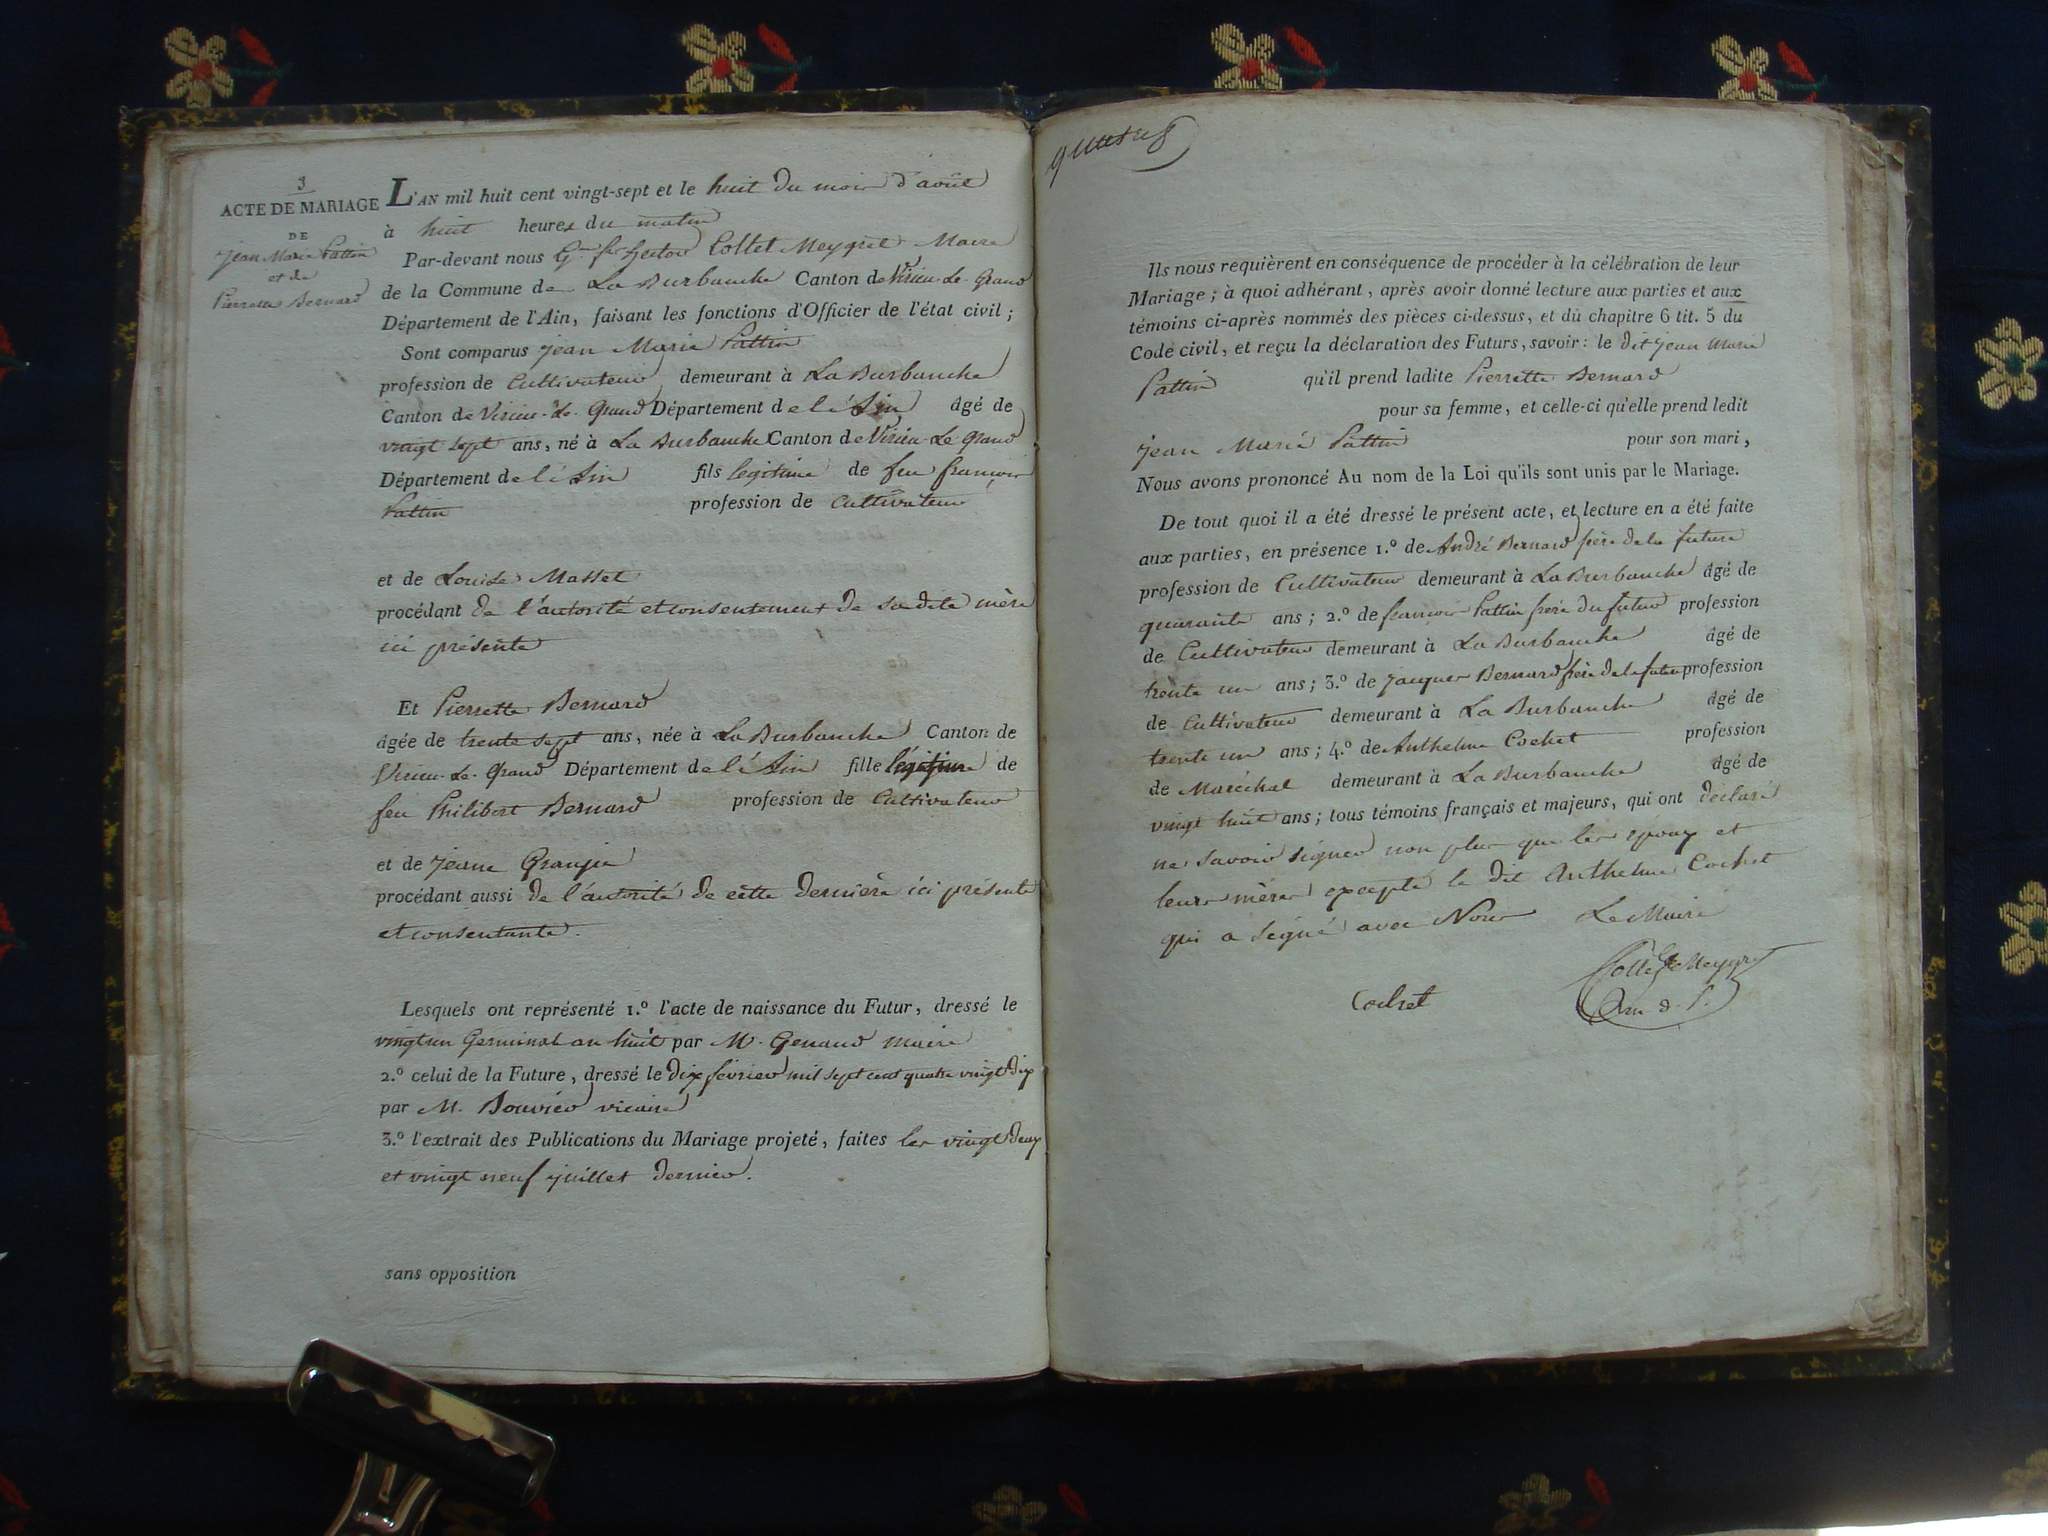 3
ACTE DE MARIAGE
DE
Jean Marie Pattin
et de
Pierrette Bernard
L'AN mil huit cent vingt-sept et le huit du mois d'août
à huit heures du matin
Par-devant nous Collet Meygret Maire
de la Commune de La Burbanche Canton de Virieu-Le-Grand
Département de l'Ain, faisant les fonctions d'Officier de l'état civil;
Sont comparus Jean Marie Pattin
profession de Cultivateur demeurant à La Burbanche
Canton de Virieu-Le-Grand Département de l'Ain âgé de
vingt sept ans, né à La Burbanche Canton de Virieu-Le-Grand
Département de l'Ain fils legitime de feu françois
Pattin profession de Cultivateur
et de Louise Masset
procédant de l'autorité et consentement de sa dite mère
ici présente
Et Pierrette Bernard
âgée de trente sept ans, née à La Burbanche Canton de
Virieu-Le-Grand Département de l'Ain fille légitime de
feu Philibert Bernard profession de Cultivateur
et de Jeane Granjeu
procédant aussi de l'autorité de cette dernière ici présente
et consentante.
Lesquels ont représenté 1.º l'acte de naissance du Futur, dressé le
vingt un Germinal an huit par M. Genaud maire
2.º celui de la Future, dressé le dix fevrier mil sept cent quatre vingt dix
par M. Bouvier vicaire
3.º l'extrait des Publications du Mariage projeté, faites les vingt deux
et vingt neuf juillet dernier.
sans opposition
quatre
Ils nous requièrent en conséquence de procéder à la célébration de leur
Mariage; à quoi adhérant, après avoir donné lecture aux parties et aux
témoins ci-après nommés des pièces ci-dessus, et du chapitre 6 tit. 5 du
Code civil, et reçu la déclaration des Futurs, savoir: le dit Jean Marie
Pattin qu'il prend ladite Pierrette Bernard
pour sa femme, et celle-ci qu'elle prend ledit
Jean Marie Pattin pour son mari,
Nous avons prononcé Au nom de la Loi qu'ils sont unis par le Mariage.
De tout quoi il a été dressé le présent acte, et lecture en a été faite
aux parties, en présence 1.º de André Bernard frère de la future
profession de Cultivateur demeurant à La Burbanche âgé de
quarante ans; 2.º de françois Pattin frère du futur profession
de Cultivateur demeurant à La Burbanche âgé de
trente un ans; 3.º de Jacques Bernard frère de la future profession
de Cultivateur demeurant à La Burbanche âgé de
trente un ans; 4.º de Anthelme Cochet profession
de Maréchal demeurant à La Burbanche âgé de
vingt huit ans; tous témoins français et majeurs, qui ont déclaré
ne savoir signer non plus que les epoux et
leurs mères excepté le dit Anthelme Cochet
qui a signé avec Nous Le Maire
Collet Meygret
Cochet